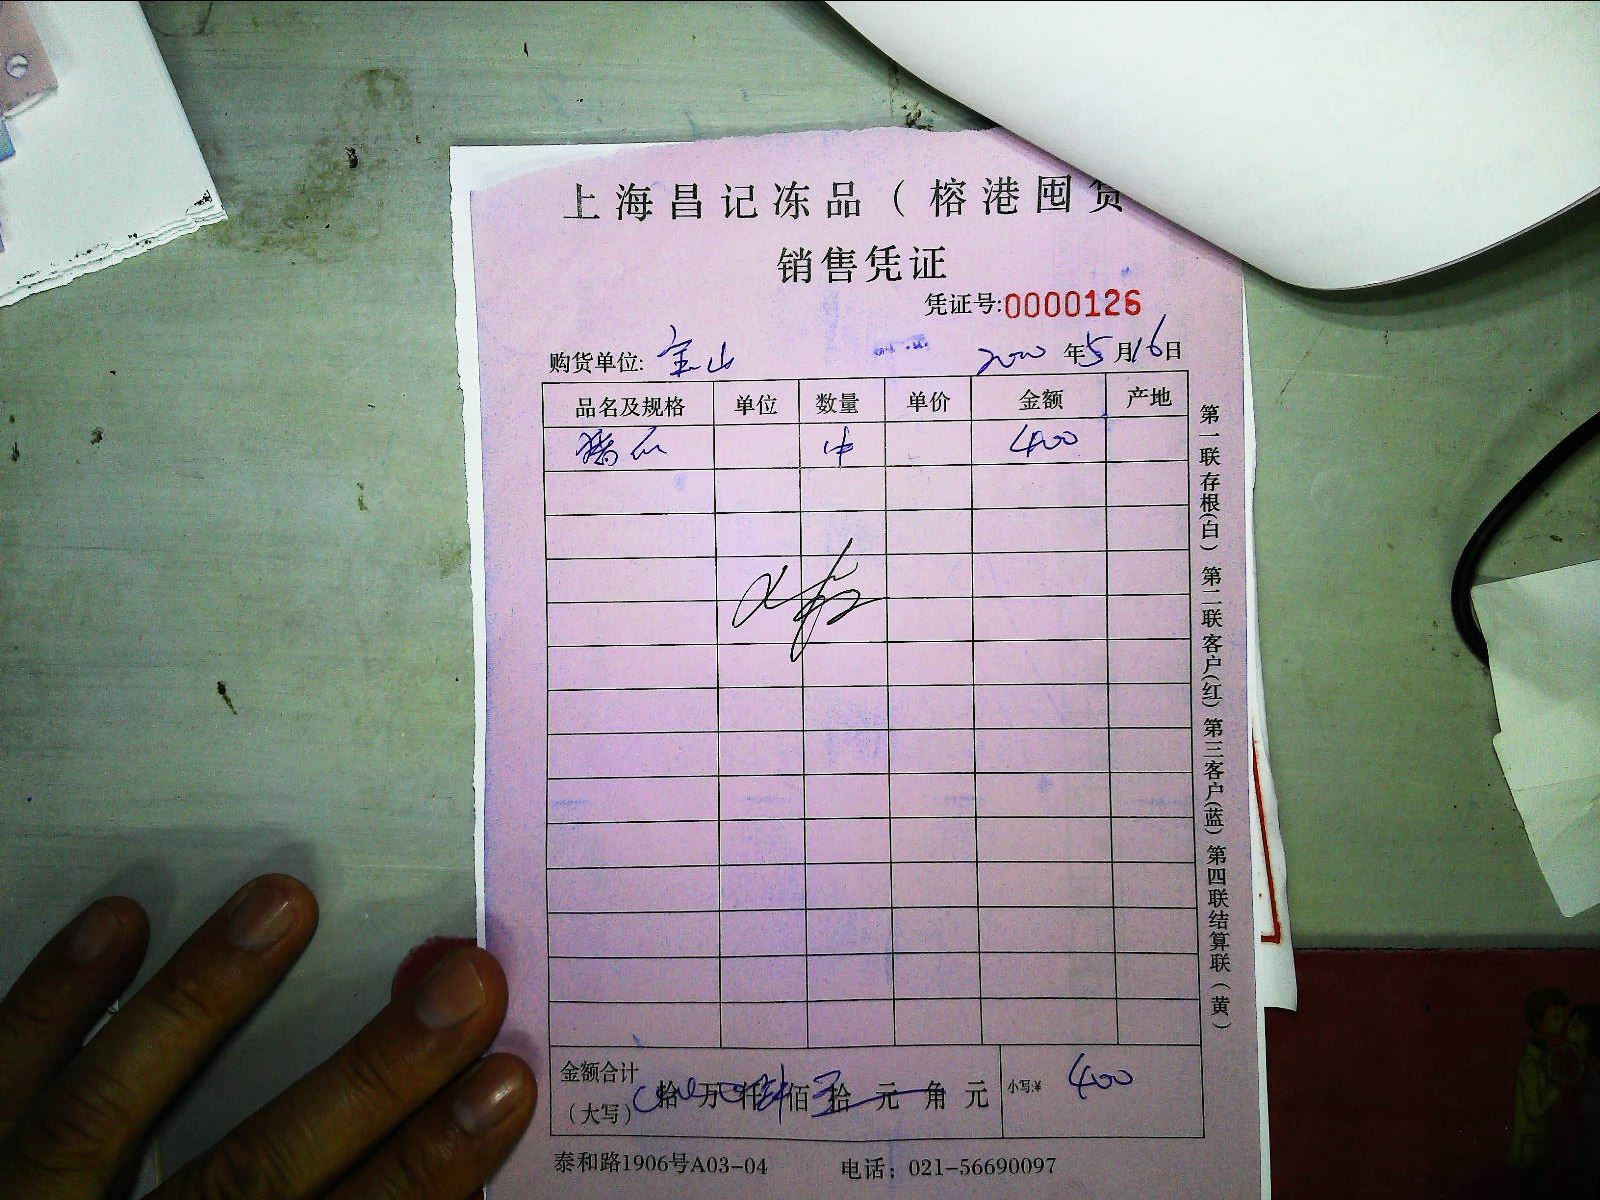 上海昌记冻品（榕港囤货
销售凭证
凭证号:0000126
购货单位: 宝山 2020 年5月16日
品名及规格 单位 数量 单价 金额 产地
猪 400
金额合计（大写） 拾 万 仟 肆 佰 拾 元 角 元 小写:¥ 400
泰和路1906号A03-04 电话：021-56690097
第一联存根(白) 第二联客户(红) 第三客户(蓝) 第四联结算联(黄)